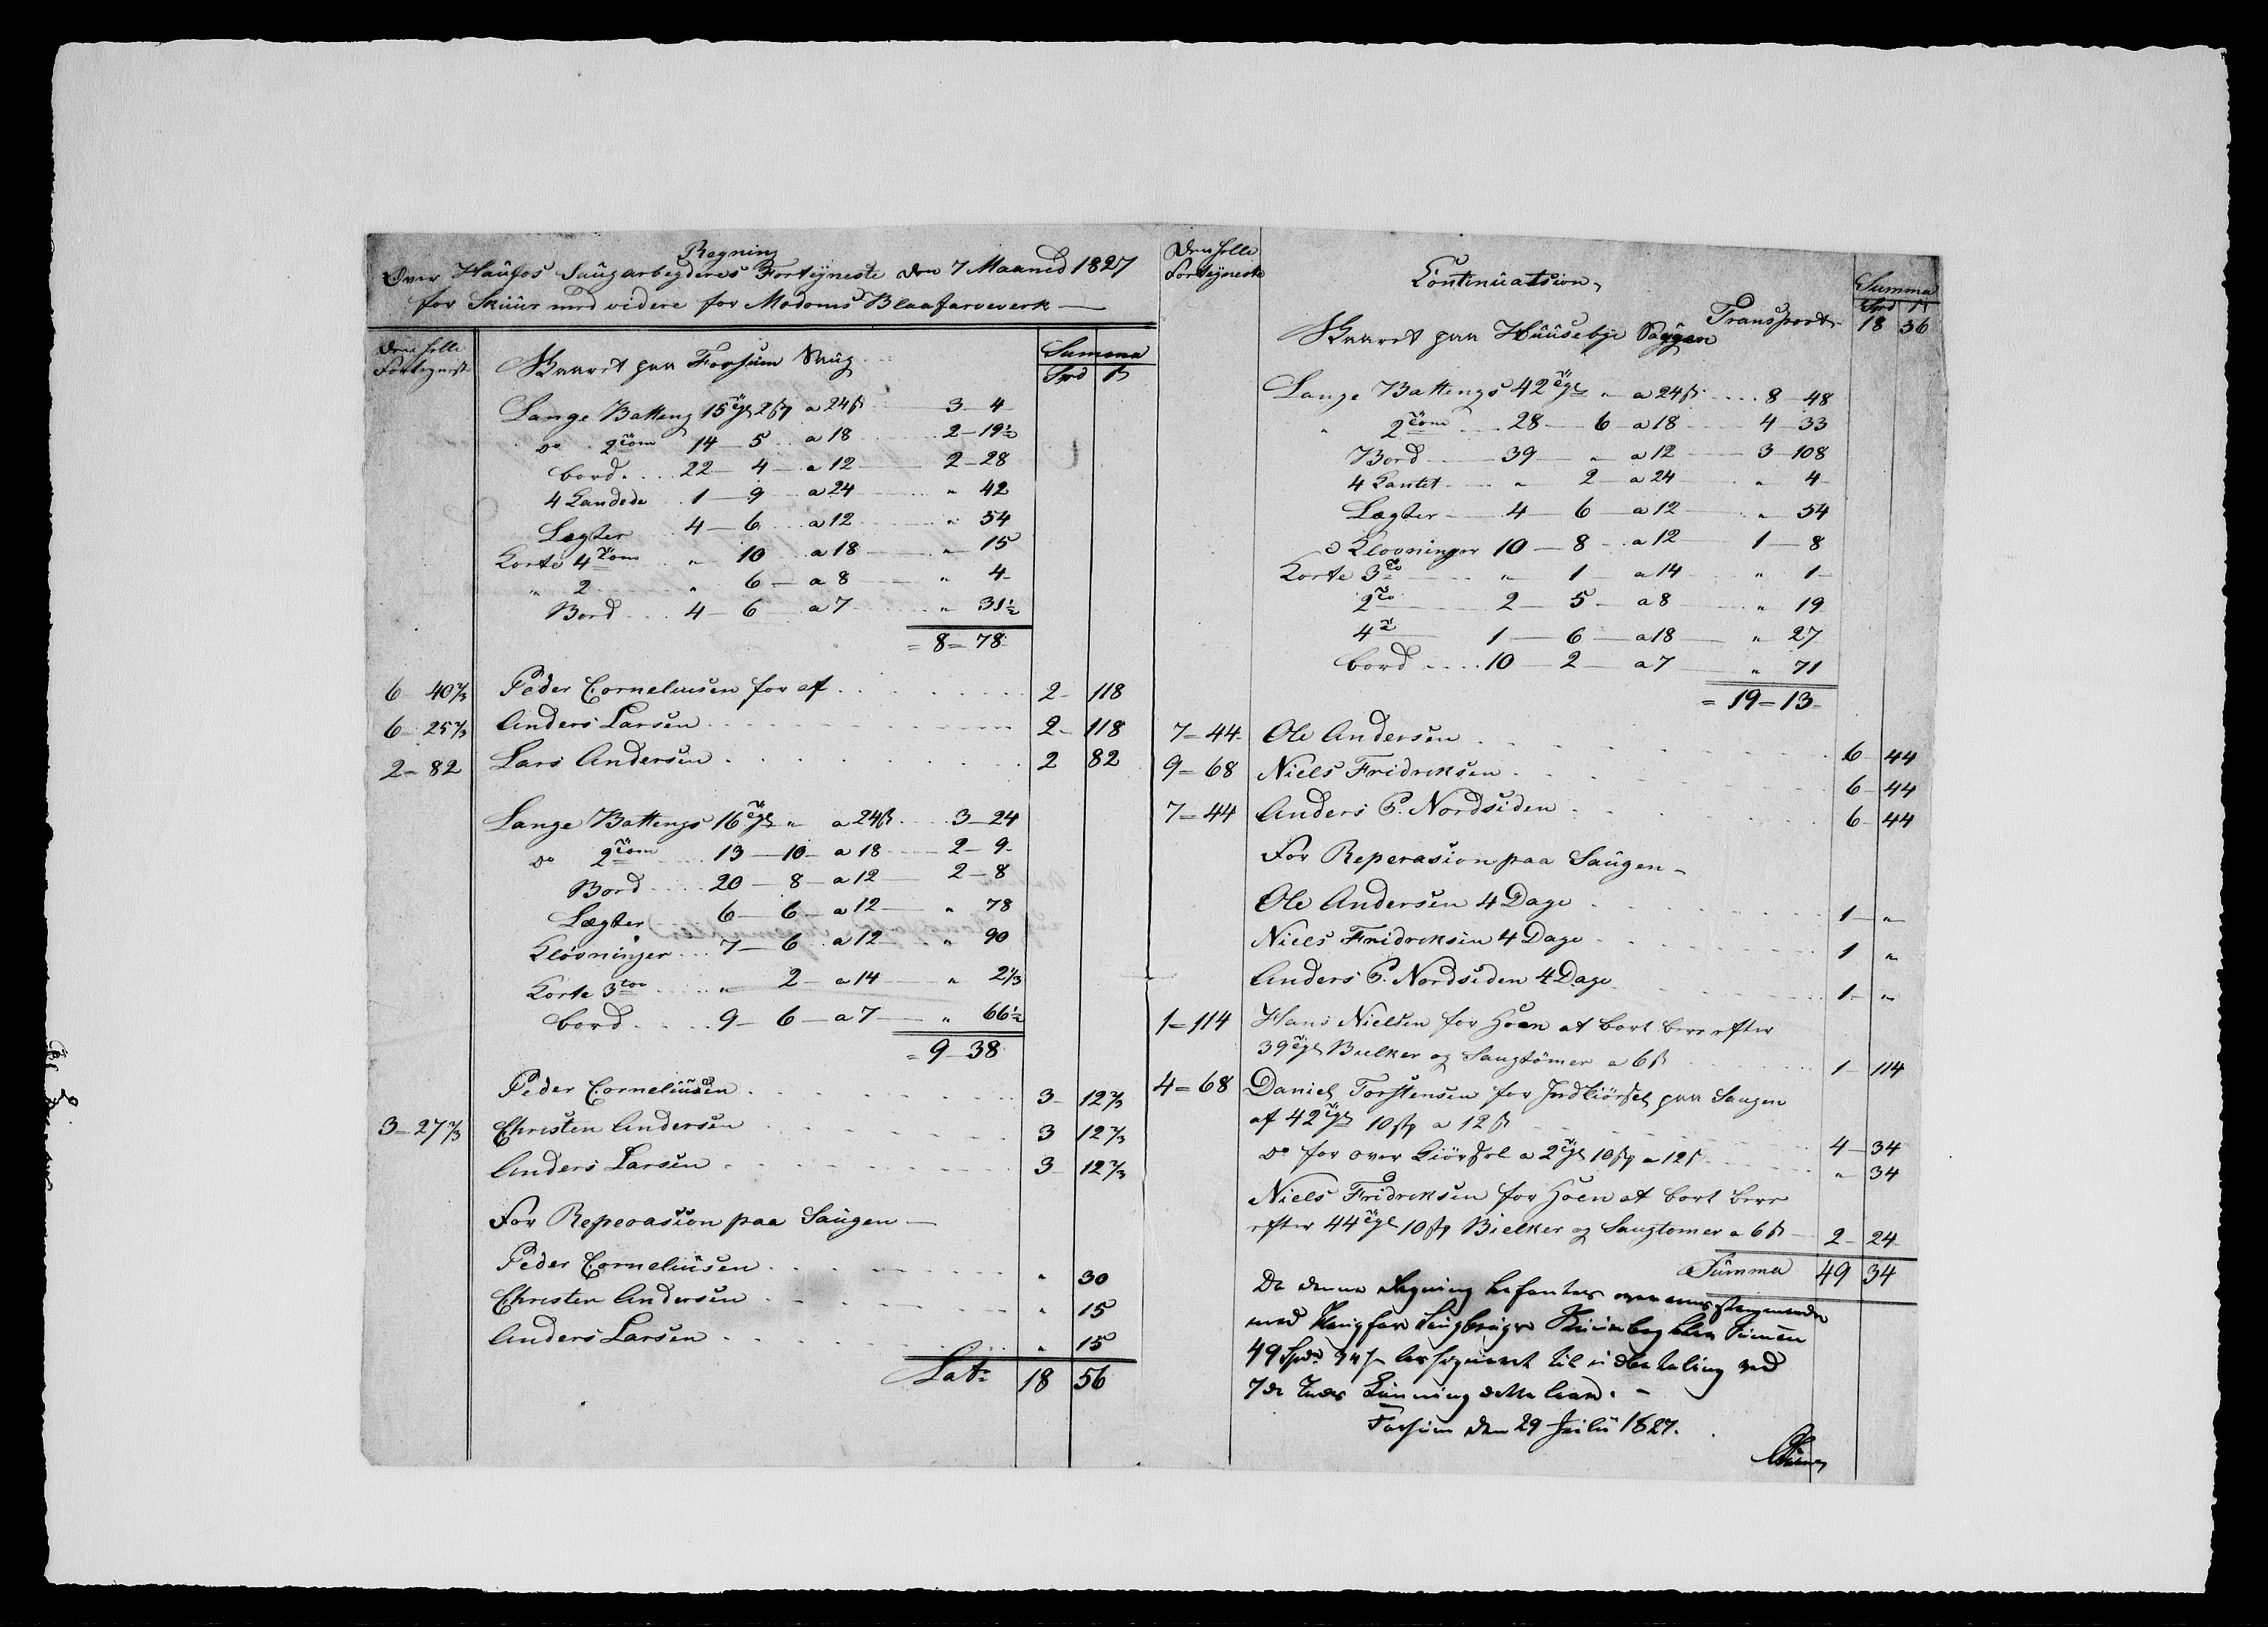 Regning
Over Haüfos Saügarbeyderes Forteyneste den 7 Maaned 1827
for Sküür med videre for Modoms Blaafarveverk
Den helle Forteynest
Skaaret paa Fossum Saug
Summa
Spd ß
Lange Batteng 15 2 a 24 ß 3 - 4
do 2 14 - 5 a 18 2 - 19½
bord 22 - 4 - a 12 2 - 28
4 Kandede 1 - 9 a 24 " 42
Lægter 4 - 6 a 12 " 54
Korte 4 " 10 a 18 " 15
" 2 " 6 - a 8 " 4
Bord 4 - 6 a 7 " 31½
= 8 = 78
6 40⅔ Peder Corneliusen for af 2 - 118
6 - 25⅔ Anders Larsen 2 - 118
2 - 82 Lars Andersen 2 82
Lange Battengs 16 " a 24 ß 3 - 24
do 2 13 - 10 - a 18 2 - 9
Bord 20 - 8 - a 12 2 - 8
Lægter 6 - 6 - a 12 " 78
Kløvninger 7 - 6 a 12 " 90
Korte 3 " 2 - a 14 " 2⅓
bord 9 - 6 - a 7 " 66½
= 9 - 38
Peder Corneliüsen 3 - 12⅔
3 = 27⅔ Christen Andersen 3 12⅔
Anders Larsen 3 - 12⅔
For Reperasion paa Saügen
Peder Corneliüsen " 30
Christen Andersen " 15
Anders Larsen " 15
Lat: 18 56
Den helle Forteyneste
Continuatsion
Summa
Spd ß
Transport 18 56
Skaaret paa Hüüsebye Saugen
Lange Battengs 42 " a 24 ß 8 - 48
" 2 28 - 6 - a 18 4 - 33
Bord 39 - " a 12 3 - 108
4 Kantet " 2 - a 24 " 4
Lægter 4 - 6 - a 12 " 54
Klovninger 10 - 8 - a 12 1 - 8
Korte 3 " 1 - a 14 " 1
2 2 - 5 - a 8 " 19
4 1 - 6 - a 18 " 27
bord 10 - 2 - a 7 " 71
= 19 = 13
7 = 44 Ole Andersen 6 - 44
9 = 68 Niels Fridreksen 6 - 44
7 = 44 Anders P. Nordsiden 6 - 44
For Reperasion paa Saügen
Ole Andersen 4 Dage 1 - "
Niels Fridreksen 4 Dage 1 "
Anders P. Nordsiden 4 Dage 1 - "
1 = 114 Hans Nielsen for Hoen at bort bere efter
39 Bielker og Saugtömer a 6 ß 1 - 114
4 = 68 Daniel Torstensen for Indkiörsel paa Saugen
af 42 10 a 12 ß 4 - 34
do for over Kiörsel a 2 10 a 12 ß " 34
Niels Fridreksen for Hoen at bort bere
efter 44 10 Bielker og Saugtomer a 6 ß 2 - 24
Summa 49 34
Da denne Regning befindes overeensstemmende
med
49 Spd 34 til udbetaling ved
7de
Fossum den 29 Julii 1827.